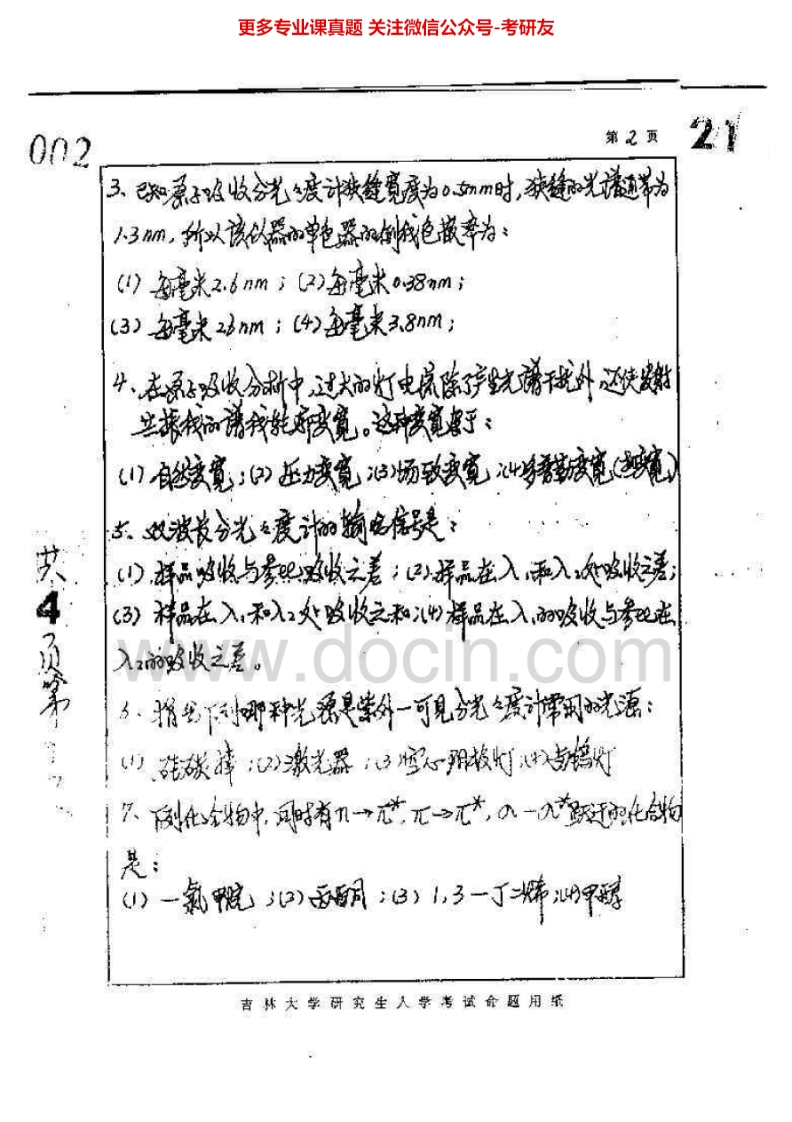 更多专业课真题 关注微信公众号-考研友
002
第2页 21
3、已知原子吸收分光光度计狭缝宽度为0.5nm时,狭缝的光谱通带为
1.3nm,所以该仪器的单色器的倒线色散率为:
(1) 每毫米2.6nm;(2)每毫米0.38nm;
(3) 每毫米26nm;(4)每毫米3.8nm;
4、在原子吸收分析中,过大的灯电流除了产生光谱干扰外,还使发射
共振线的谱线轮廓变宽。这种变宽属于:
(1)自然变宽;(2)压力变宽;(3)场致变宽;(4)多普勒变宽(变宽)
5、双波长分光光度计的输出信号是:
(1)样品吸收与参比吸收之差;(2)样品在入1和入2处吸收之差;
(3)样品在入1和入2处吸收之和;(4)样品在入1的吸收与参比在
入2的吸收之差。
6、指出下列哪种光源是紫外一可见分光光度计常用的光源:
(1)硅碳棒;(2)激光器;(3)空心阴极灯;(4)卤钨灯
7、下列化合物中,同时有n→π*,π→π*,σ→σ*跃迁的化合物
是:
(1)一氯甲烷;(2)丙酮;(3)1,3一丁二烯;(4)甲醇
共4页第
www.docin.com
吉林大学研究生入学考试命题用纸